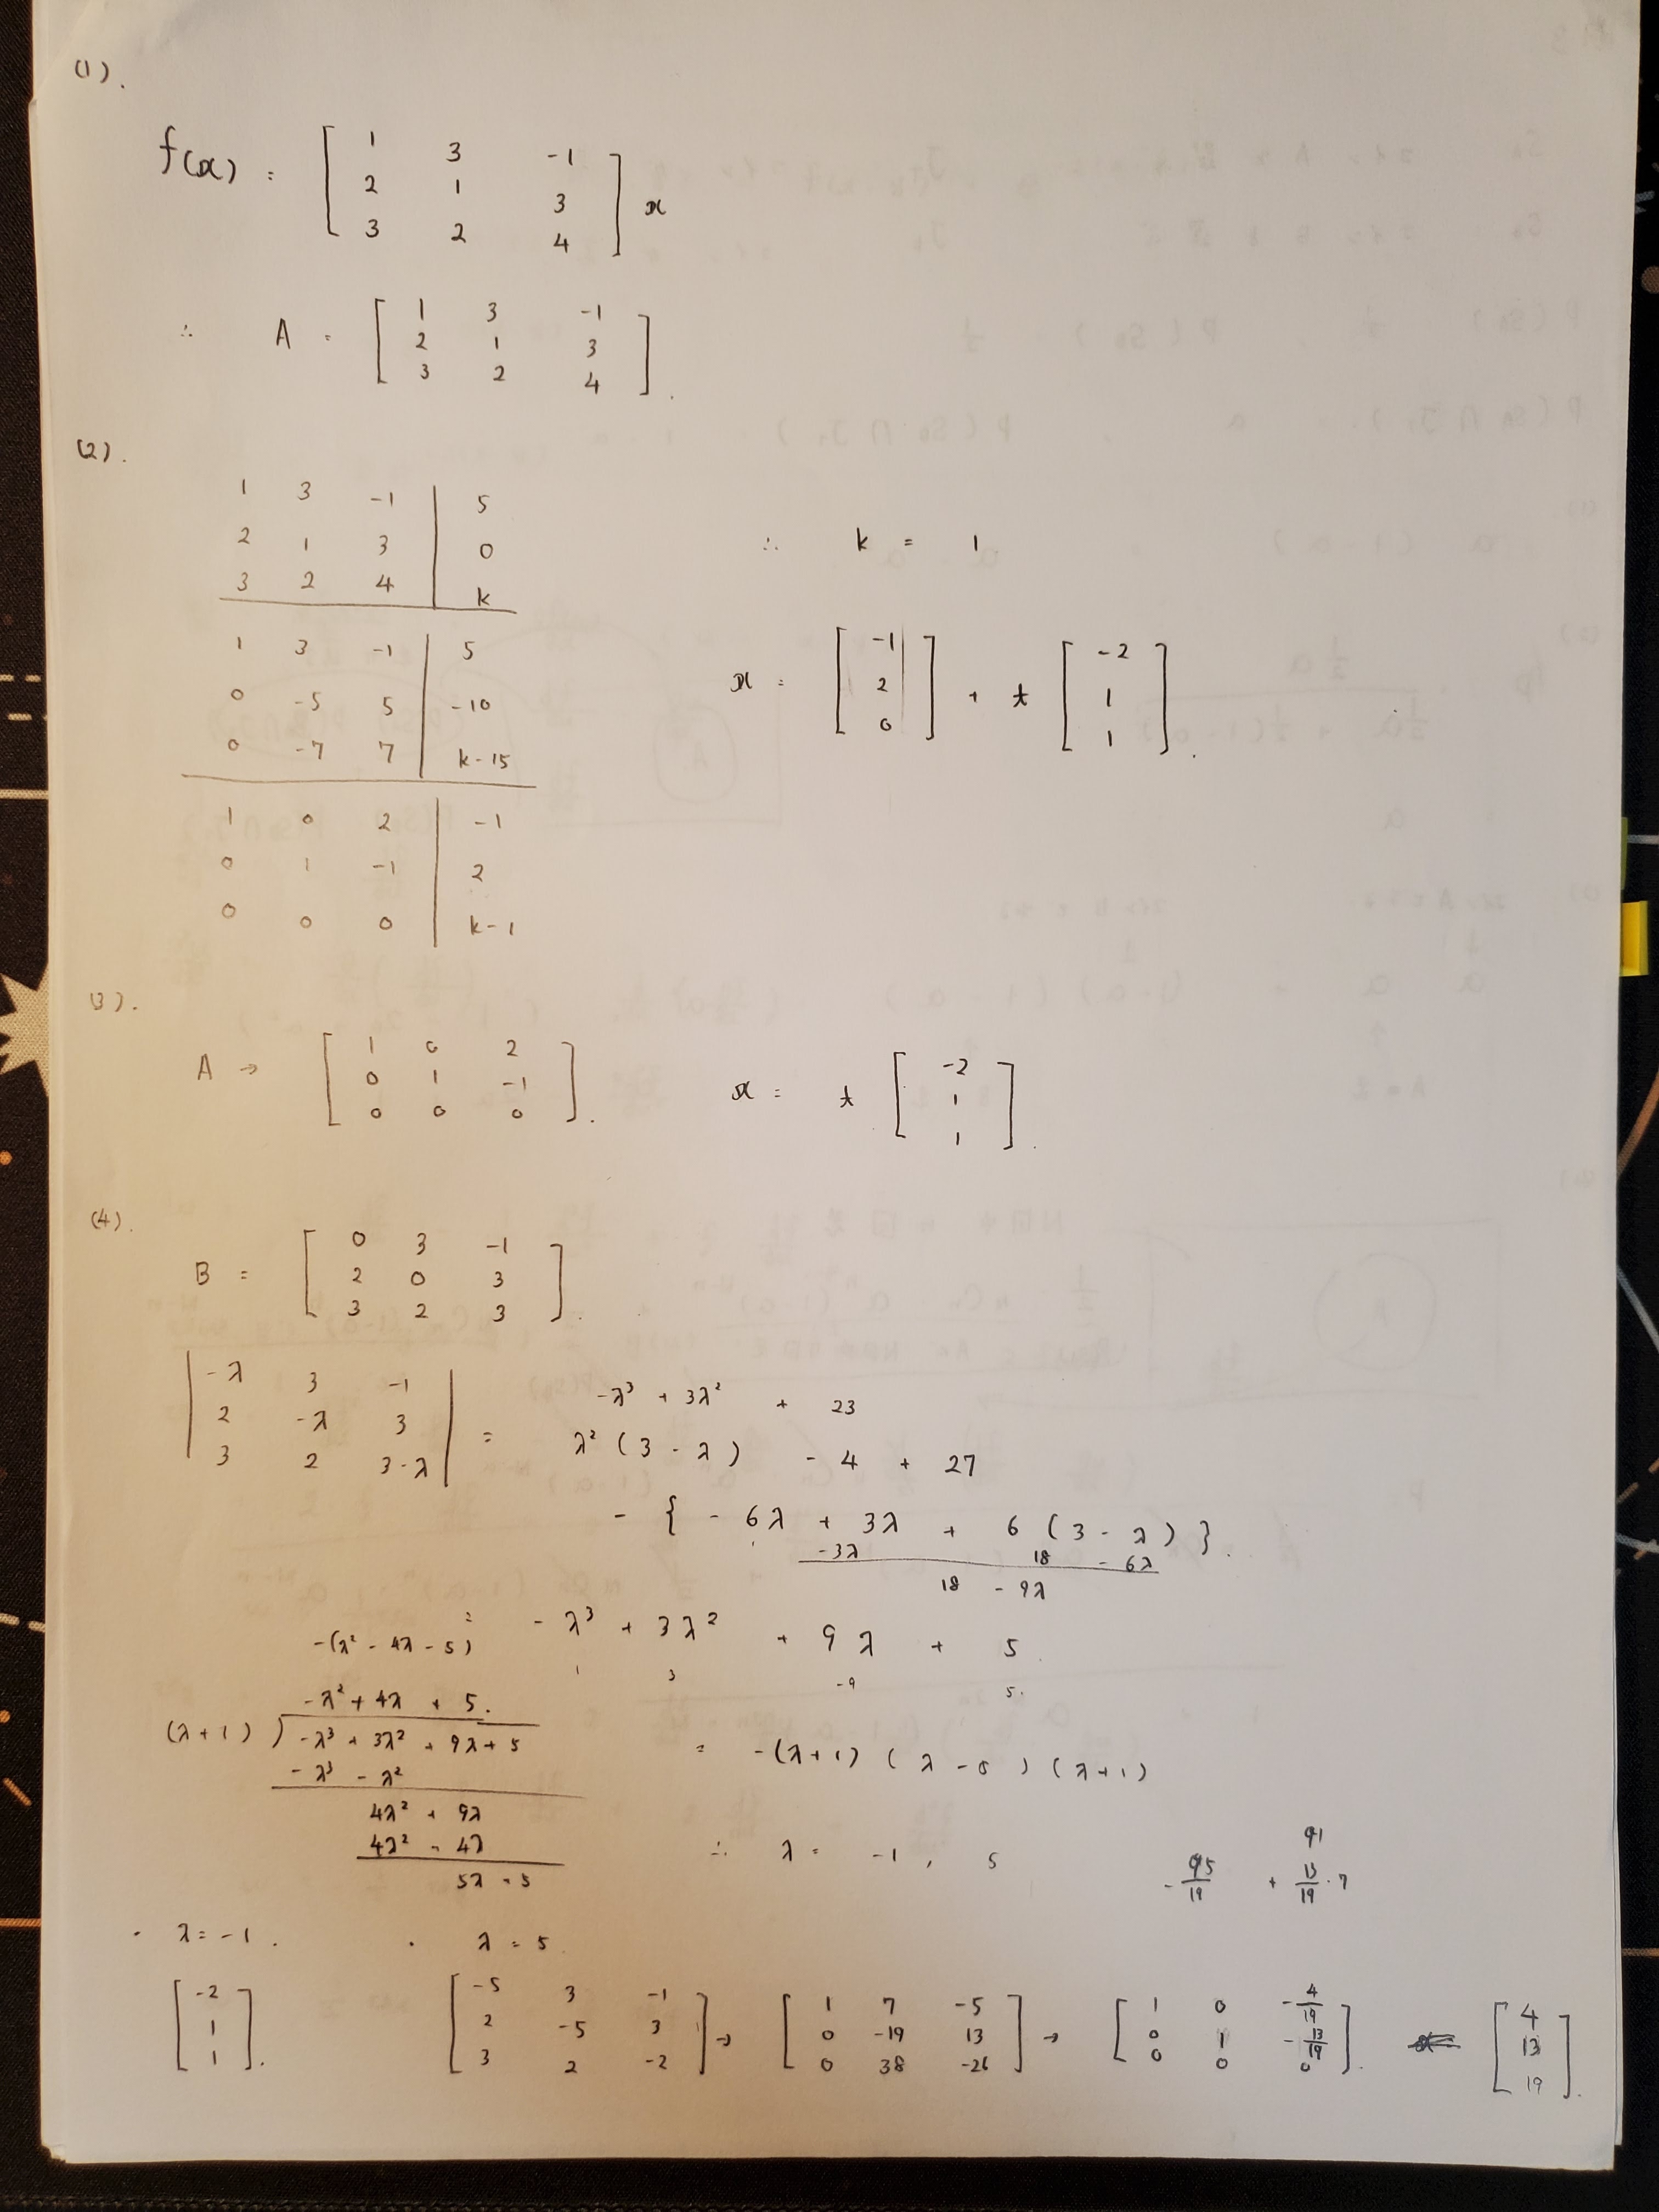 (1).
f(x) = [ 1 3 -1
2 1 3
3 2 4 ] x
∴ A = [ 1 3 -1
2 1 3
3 2 4 ].
(2).
1 3 -1 | 5
2 1 3 | 0
3 2 4 | k
1 3 -1 | 5
0 -5 5 | -10
0 -7 7 | k-15
1 0 2 | -1
0 1 -1 | 2
0 0 0 | k-1
∴ k = 1
x = [ -1
2
0 ] + t [ -2
1
1 ].
(3).
A → [ 1 0 2
0 1 -1
0 0 0 ].
x = t [ -2
1
1 ].
(4).
B = [ 0 3 -1
2 0 3
3 2 3 ].
| -λ 3 -1
2 -λ 3
3 2 3-λ | =
-λ³ + 3λ² + 23
λ² (3 - λ) - 4 + 27
- { - 6λ + 3λ + 6 (3 - λ) }.
-3λ 18 - 6λ
18 - 9λ
= - λ³ + 3λ² + 9λ + 5
1 3 -9 5.
-(λ² - 4λ - 5)
-λ² + 4λ + 5.
(λ+1) ) -λ³ + 3λ² + 9λ + 5
- λ³ - λ²
4λ² + 9λ
4λ² - 4λ
= -(λ+1) (λ - 5) (λ+1)
∴ λ = -1, 5
91
- 95/19 + 13/19 · 7
・ λ = -1.
[ -2
1
1 ].
・ λ = 5
[ -5 3 -1
2 -5 3
3 2 -2 ] → [ 1 7 -5
0 -19 13
0 38 -26 ] → [ 1 0 -4/19
0 1 -13/19
0 0 0 ].
[ 4
13
19 ].